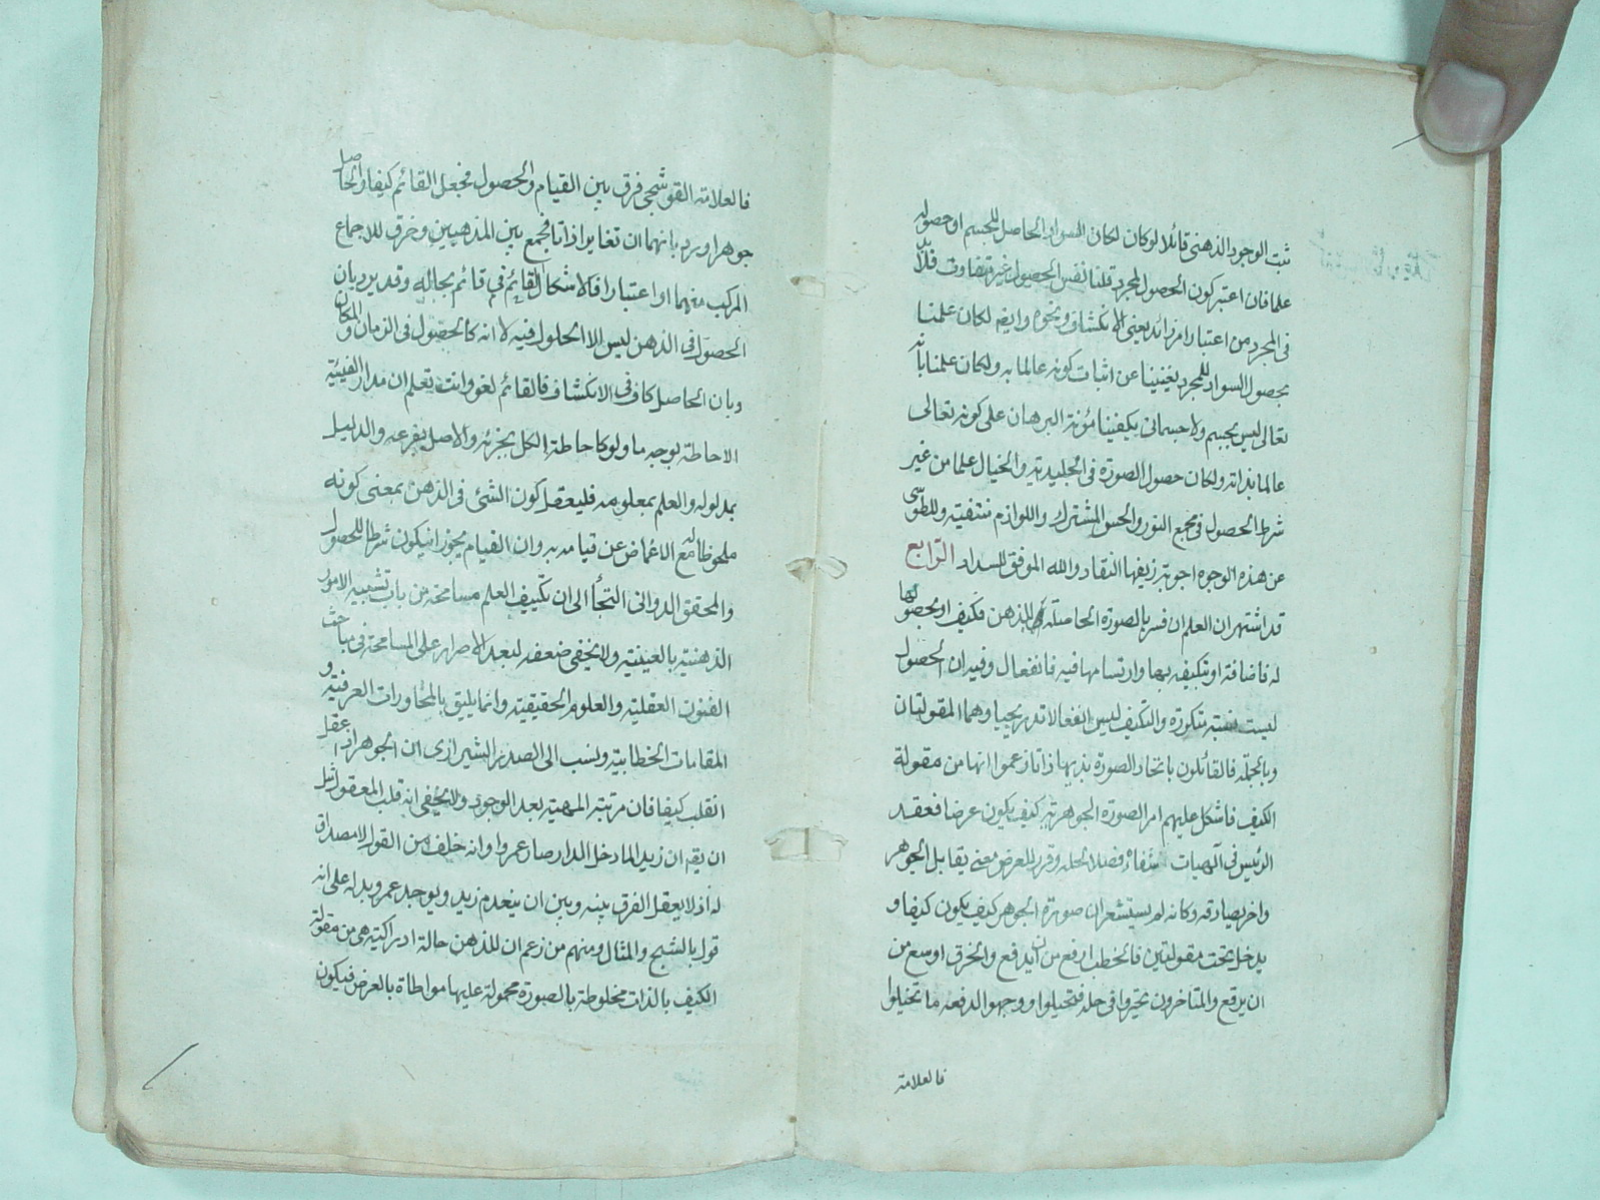 ثبت الوجود الذهنى قائلا لوكان لكان السواد الحاصل للجسم او حصوله
علما فان اعتبر كون الحصول لمجرد قلنا نفس الحصول غير متفاوت فلابد
فى المجرد من اعتبار امر زائد يعنى الانكشاف ونحوه وايضا لكان علمنا
بحصول السواد للمجرد يغنينا عن اثبات كونه عالما به ولكان علمنا بانه
تعالى ليس بجسم ولا جسمانى يكفينا مؤنة البرهان على كونه تعالى
عالما بذاته ولكان حصول الصورة فى الجليدية والخيال علما من غير
شرط الحصول فى مجمع النور والحس المشترك واللوازم منتفية وللطوسى
عن هذه الوجوه اجوبة زيفها النقاد والله الموفق للسداد الرابع
قد اشتهر ان العلم ان فسر بالصورة الحاصلة فى الذهن فكيف او بحصولها
له فاضافة او بتكيفه بها وارتسامها فيه فانفعال وفيه ان الحصول
ليست نسبة متكررة والتكيف ليس انفعالا تدريجيا وهما المقولتان
وبالجملة فالقائلون باتحاد الصورة بذيها ذاتا زعموا انها من مقولة
الكيف فاشكل عليهم امر الصورة الجوهرية كيف يكون عرضا فعقد
الرئيس فى الهيات شفاءه فصلا لحله وقرر للعرض معنى يقابل الجوهر
واخر يصادقه وكانه لم يستشعر ان صورة الجوهر كيف يكون كيفا و
يدخل تحت مقولتين فالخطب ارفع من ان يدفع والخرق اوسع من
ان يرقع والمتاخرون تحيروا فى حله فتحيلوا ووجهوا لدفعه ما تخيلوا
فالعلامة
فالعلامة القوشجى فرق بين القيام والحصول فجعل القائم كيفا والحاصل
جوهرا ويرد بانهما ان تغايرا ذاتا فجمع بين المذهبين وخرق للاجماع
المركب منهما او اعتبارا فالاشكال القائم فى قائم بحاله وقد يرد بان
الحصول فى الذهن ليس الا الحلول فيه لا انه كالحصول فى الزمان والمكان
وبان الحاصل كاف فى الانكشاف فالقائم لغو وانت تعلم ان مدار الفيئية
الاحاطة بوجه ما ولو كاحاطة الكل بجزئه والاصل بفرعه والدليل
بمدلوله والعلم بمعلومه فليعقل كون الشئ فى الذهن بمعنى كونه
ملحوظا له مع الاغماض عن قيامه به وان القيام يجوز ان يكون شرطا للحصول
والمحقق الدوانى التجأ الى ان تكييف العلم مسامحة من باب تشبيه الامور
الذهنية بالعينية ولا يخفى ضعفه لبعد الاصرار على المسامحة فى مباحث
الفنون العقلية والعلوم الحقيقية وانما يليق بالمحاورات العرفية و
المقامات الخطابية ونسب الى الصدر الشيرازى ان الجوهر اذا عقل
انقلب كيفا فان مرتبة المهية بعد الوجود ولا يخفى انه قلب المعقول مثل
ان يقم ان زيدا لما دخل الدار صار عمروا وانه خلف من القول لا مصداق
له اذ لا يعقل الفرق بينه وبين ان ينعدم زيد ويوجد عمرو بدله على انه
قول بالشبح والمثال ومنهم من زعم ان للذهن حالة ادراكية هى من مقولة
الكيف بالذات مخلوطة بالصورة محمولة عليها مواطاة بالعرض فيكون